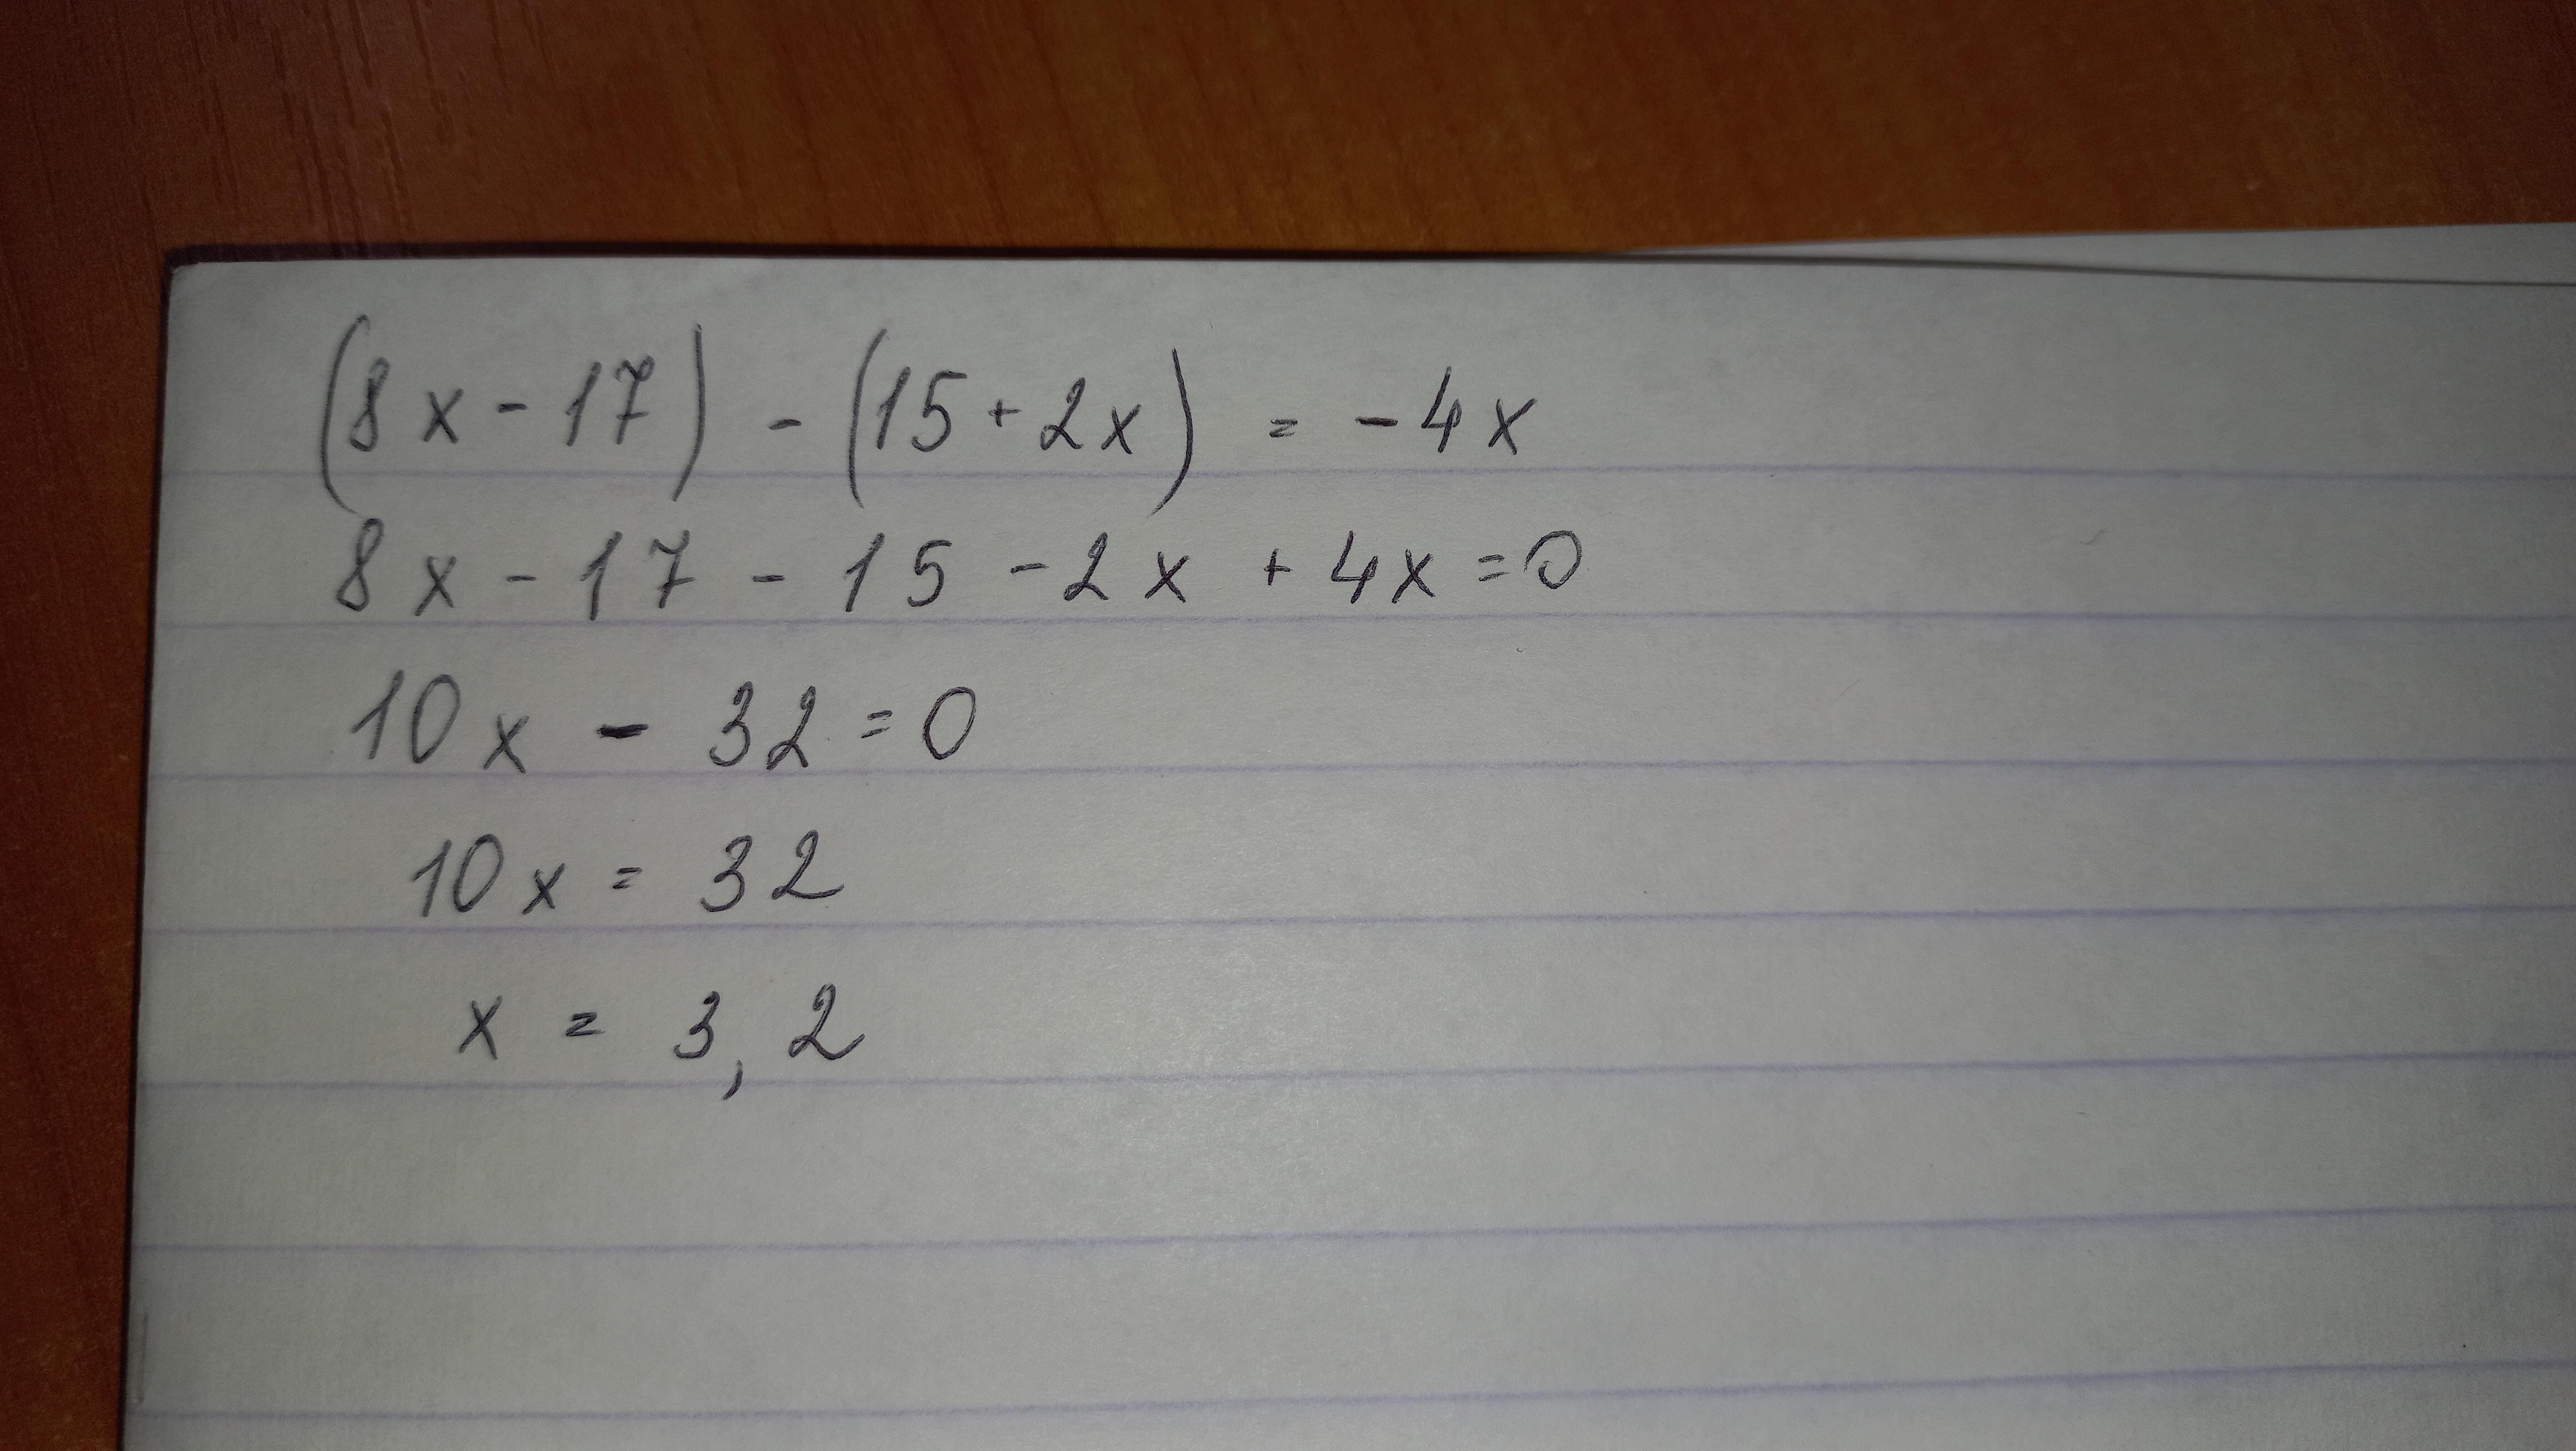 (8x - 17) - (15 + 2x) = -4x
8x - 17 - 15 - 2x + 4x = 0
10x - 32 = 0
10x = 32
x = 3,2